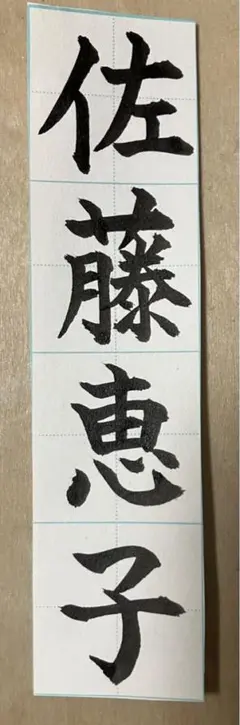 佐藤恵子